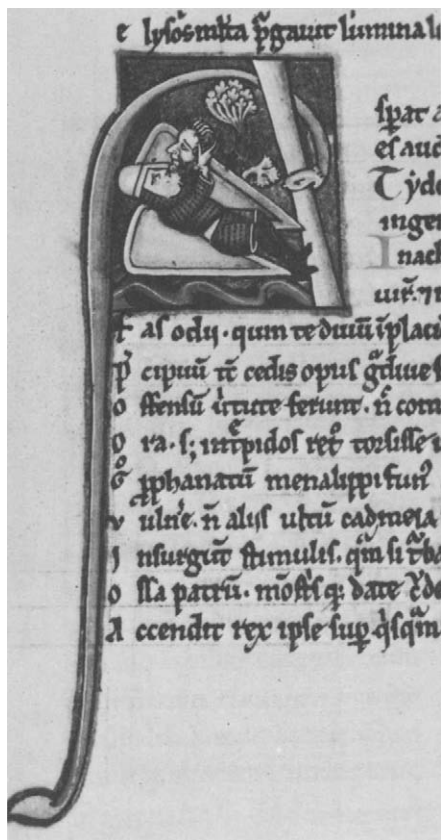 e lysos mlta pgauit lumina l
spat a
es aud
Tyde
ingen
Inach
uir. 7
f as odii . quin te diuu iplaci
p cipuu tc cedis opus gdiue f
o ffensu uirtute ferunt . n com
o ra . s; intrpidos ret torsisse
G pphanatu menalippi fun
v ulne . n aliis ultu cadmeia
I nsurgut stimulis . qm si tba
o ssa patru . mostisq; date cde
A ccendit rex ipse sup qsqm